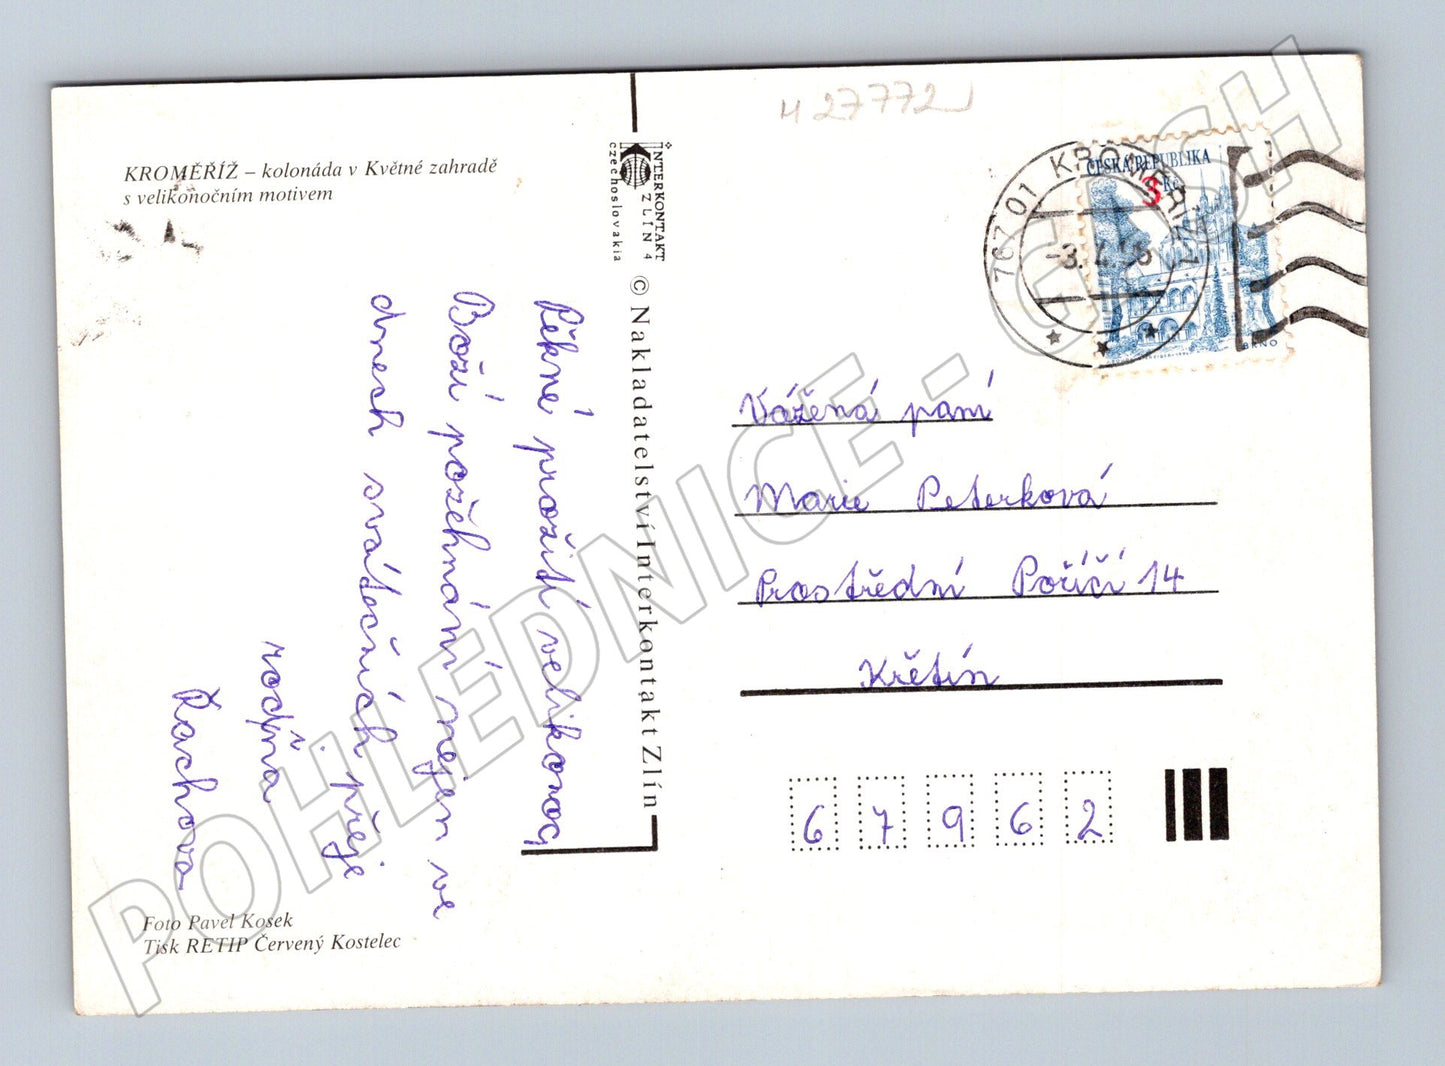 KROMĚŘÍŽ – kolonáda v Květné zahradě
s velikonočním motivem
Pěkné prožití velikonoc,
Boží požehnání nejen ve
dnech svátečních přeje
rodina
Rachova
Foto Pavel Kosek
Tisk RETIP Červený Kostelec
INTERKONTAKT
ZLÍN 4
czechoslovakia
© Nakladatelství Interkontakt Zlín
H 27772
ČESKÁ REPUBLIKA
3 Kč
BRNO
767 01 KROMĚŘÍŽ 1
-3. 4. 96
Vážená paní
Marie Peterková
Prostřední Poříčí 14
Křetín
67962
POHLEDNICE - GASH